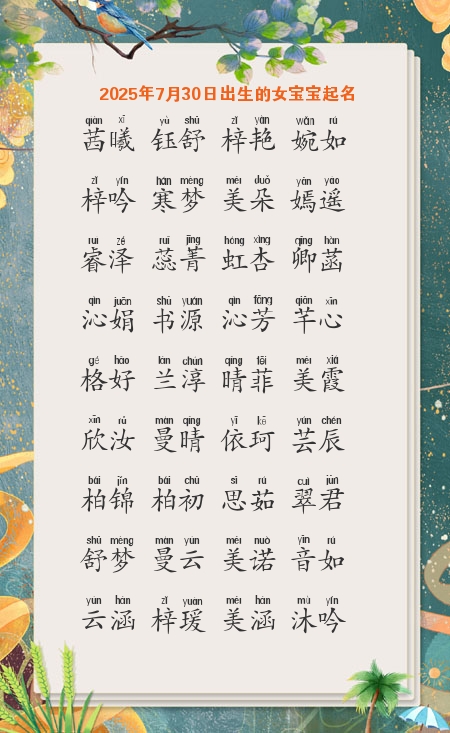 2025年7月30日出生的女宝宝起名
qiàn xī yù shū zǐ yàn wǎn rú
茜曦 钰舒 梓艳 婉如
zǐ yín hán mèng měi duǒ yān yáo
梓吟 寒梦 美朵 嫣遥
ruì zé ruǐ jīng hóng xìng qīng hàn
睿泽 蕊菁 虹杏 卿菡
qìn juān shū yuán qìn fāng qiān xīn
沁娟 书源 沁芳 芊心
gé hǎo lán chún qíng fēi měi xiá
格好 兰淳 晴菲 美霞
xīn rǔ màn qíng yī kē yún chén
欣汝 曼晴 依珂 芸辰
bǎi jǐn bǎi chū sī rú cuì jūn
柏锦 柏初 思茹 翠君
shū mèng màn yún měi nuò yīn rú
舒梦 曼云 美诺 音如
yún hán zǐ yuàn měi hán mù yín
云涵 梓瑗 美涵 沐吟